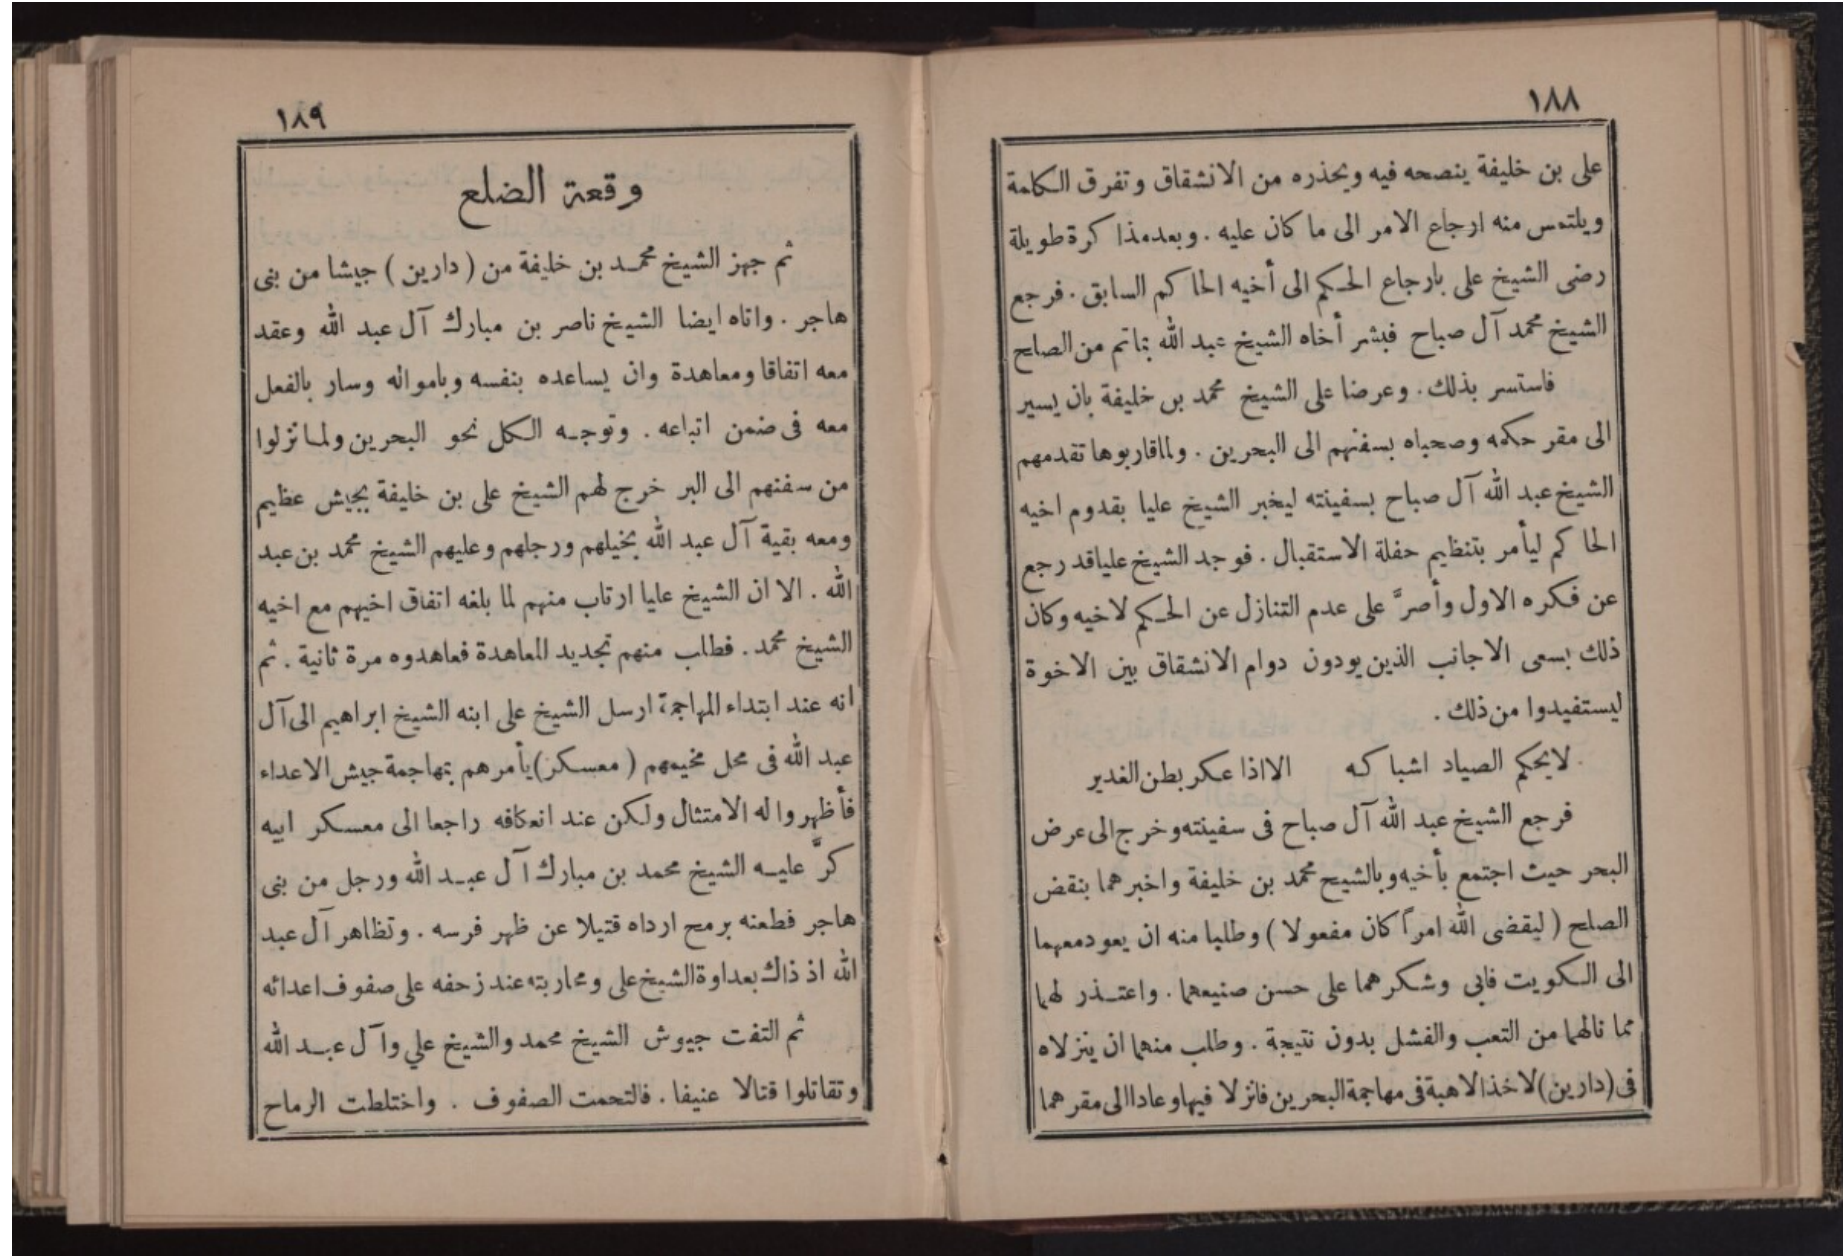 ١٨٨
على بن خليفة ينصحه فيه ويحذره من الانشقاق وتفرق الكلمة
ويلتمس منه ارجاع الامر الى ما كان عليه . وبعد مذاكرة طويلة
رضى الشيخ على بارجاع الحكم الى أخيه الحاكم السابق . فرجع
الشيخ محمد آل صباح فبشر أخاه الشيخ عبد الله بما تم من الصلح
فاستسر بذلك . وعرضا على الشيخ محمد بن خليفة بان يسير
الى مقر حكمه وصحباه بسفنهم الى البحرين . ولما قاربوها تقدمهم
الشيخ عبد الله آل صباح بسفينته ليخبر الشيخ عليا بقدوم اخيه
الحاكم ليأمر بتنظيم حفلة الاستقبال . فوجد الشيخ عليا قد رجع
عن فكره الاول وأصرَّ على عدم التنازل عن الحكم لاخيه وكان
ذلك بسعى الاجانب الذين يودون دوام الانشقاق بين الاخوة
ليستفيدوا من ذلك .
لا يحكم الصياد اشباكه الا اذا عكر بطن الغدير
فرجع الشيخ عبد الله آل صباح فى سفينته وخرج الى عرض
البحر حيث اجتمع بأخيه وبالشيح محمد بن خليفة واخبرهما بنقض
الصلح ( ليقضى الله امراً كان مفعولا ) وطلبا منه ان يعود معهما
الى الكويت فابى وشكرهما على حسن صنيعهما . واعتذر لهما
مما نالهما من التعب والفشل بدون نتيجة . وطلب منهما ان ينزلاه
فى (دارين) لاخذ الاهبة فى مهاجمة البحرين فانزلا فيها وعادا الى مقرهما
١٨٩
وقعة الضلع
ثم جهز الشيخ محمد بن خليفة من ( دارين ) جيشا من بنى
هاجر . واتاه ايضا الشيخ ناصر بن مبارك آل عبد الله وعقد
معه اتفاقا ومعاهدة وان يساعده بنفسه وبامواله وسار بالفعل
معه فى ضمن اتباعه . وتوجه الكل نحو البحرين ولما نزلوا
من سفنهم الى البر خرج لهم الشيخ على بن خليفة بجيش عظيم
ومعه بقية آل عبد الله بخيلهم ورجلهم وعليهم الشيخ محمد بن عبد
الله . الا ان الشيخ عليا ارتاب منهم لما بلغه اتفاق اخيهم مع اخيه
الشيخ محمد . فطلب منهم تجديد المعاهدة فعاهدوه مرة ثانية . ثم
انه عند ابتداء المهاجمة ارسل الشيخ على ابنه الشيخ ابراهيم الى آل
عبد الله فى محل مخيمهم ( معسكر ) يأمرهم بمهاجمة جيش الاعداء
فأظهروا له الامتثال ولكن عند انعكافه راجعا الى معسكر ابيه
كرَّ عليه الشيخ محمد بن مبارك آل عبد الله ورجل من بنى
هاجر فطعنه برمح ارداه قتيلا عن ظهر فرسه . وتظاهر آل عبد
الله اذ ذاك بعداوة الشيخ على ومحاربته عند زحفه على صفوف اعدائه
ثم التفت جيوش الشيخ محمد والشيخ علي وآل عبد الله
وتقاتلوا قتالا عنيفا . فالتحمت الصفوف . واختلطت الرماح